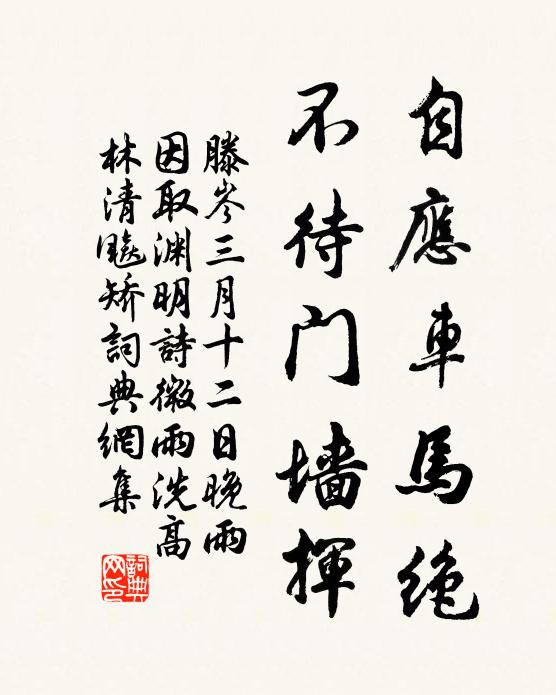 自應車馬絶
不待門墻揮
滕岑三月十二日晚雨
因取渊明詩微雨洗高
林清飈矫詞典網集
詞典
网印